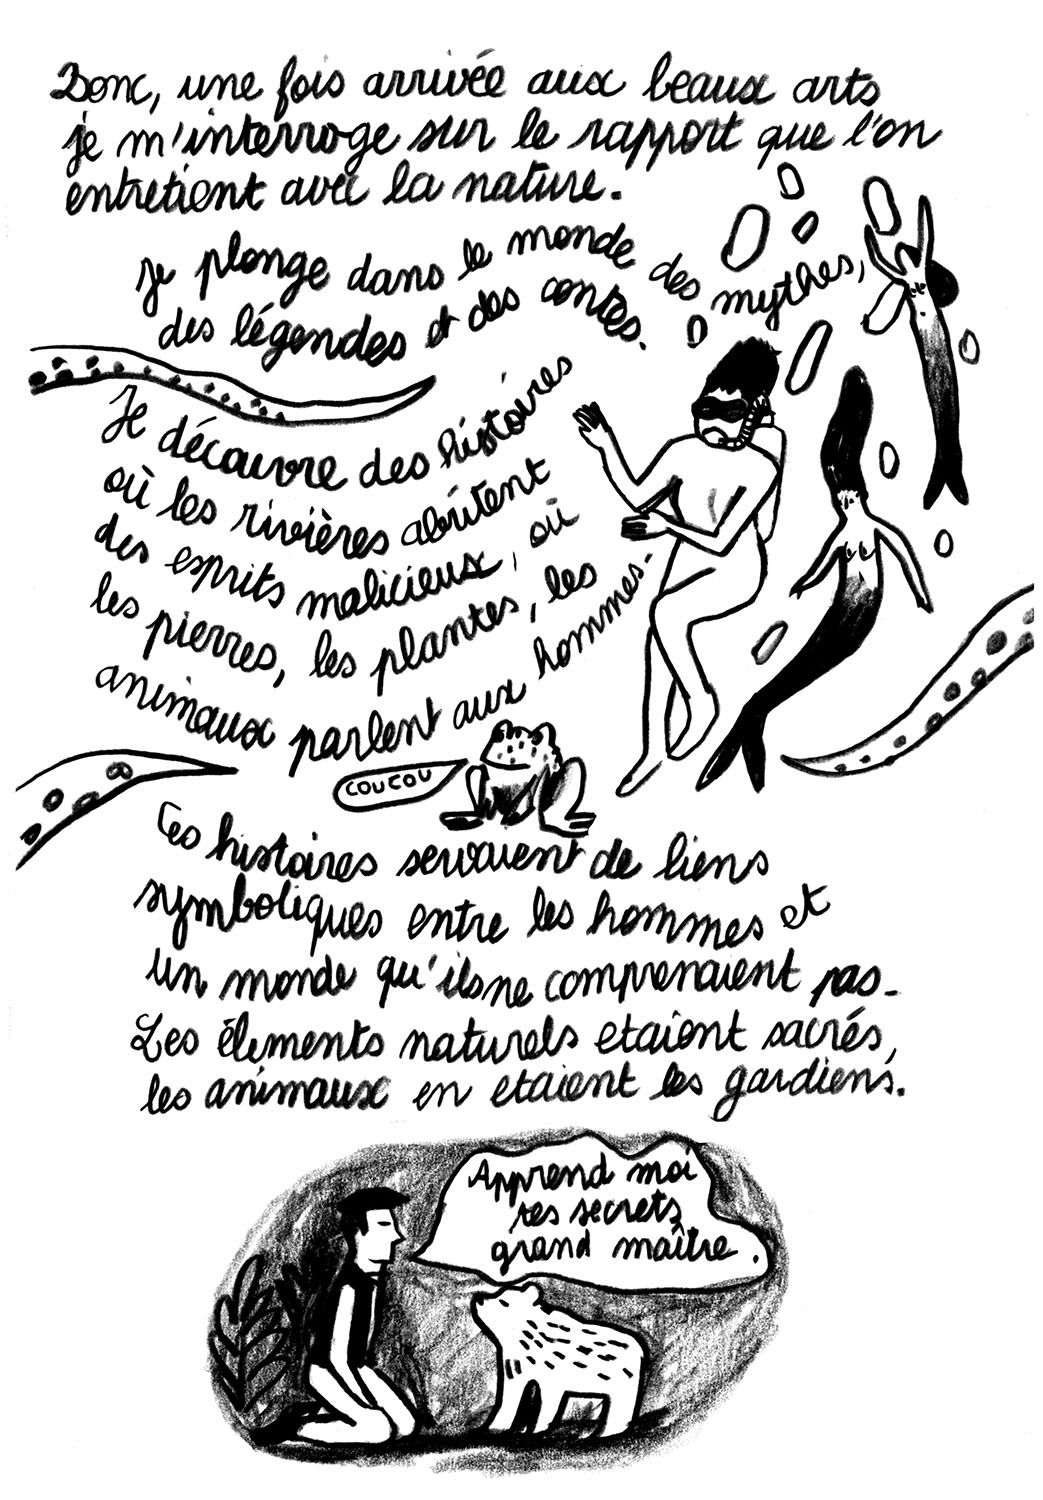 Donc, une fois arrivée aux beaux arts
je m'interroge sur le rapport que l'on
entretient avec la nature.
je plonge dans le monde des mythes,
des légendes et des contes.
Je découvre des histoires
où les rivières abritent
des esprits malicieux, où
les pierres, les plantes, les
animaux parlent aux hommes.
COUCOU
Ces histoires servaient de liens
symboliques entre les hommes et
un monde qu'ils ne comprenaient pas.
Les élements naturels etaient sacrés,
les animaux en etaient les gardiens.
Apprend moi
tes secrets
grand maître.